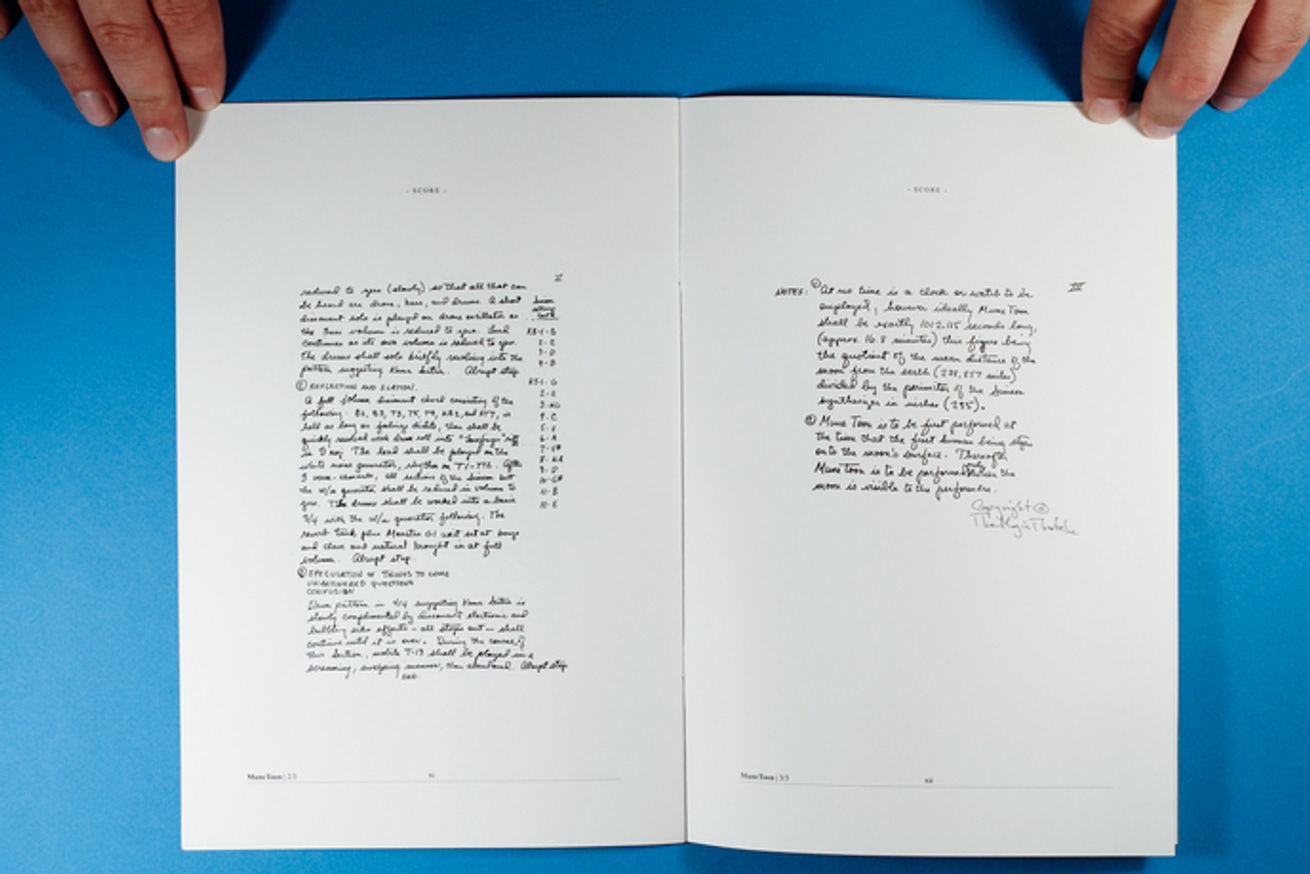 - SCORE -
I
reduced to zero (slowly) so that all that can
be heard are drone, bass, and drums. A short
dissonant solo is played on drone oscillator as
the bass volume is reduced to zero. Lead
continues as its own volume is reduced to zero.
the drums shall solo briefly resolving into the
pattern suggesting Kama Sutra. Abrupt stop.
REFLECTION AND ELATION.
A full volume dissonant chord consisting of the
following: B1, B3, T3, T5, T9, and
held as long as feelings dictate, then shall be
quickly resolved with drum roll into
in D maj. The lead shall be played on the
white noise generator, rhythm on T1-
3 verse-choruses, all sections of the
the w/n generator shall be reduced in volume to
zero. The drums shall be worked into a basic
3/4 with the w/n generator following. The
reverb tank plus Maestro G1 unit set at bongo
and clave and natural brought in at full
volume. Abrupt stop.
SPECULATION OF THINGS TO COME
UNANSWERED QUESTIONS
CONFUSION
Drum pattern in 4/4 suggesting Kama Sutra is
slowly complimented by dissonant electronic and
bubbling echo effects - all stops out - shall
continue until it is over. During the course of
this section, T-19 shall be played in a
screaming, sweeping manner, then abandoned. Abrupt stop
END.
2-C
3-D
4-B
MuneToon | 2/3
xi
- SCORE -
III
NOTES: ① At no time is a clock or watch to be
employed, however ideally Mune Toon
shall be exactly 1012.115 seconds long,
(approx 16.8 minutes) this figure being
the quotient of the mean distance of the
moon from the earth (238,857 miles)
divided by the perimeter of the Simeon
synthesizer in inches (235).
② Mune Toon is to be first performed at
the time that the first human being steps
onto the moon's surface. Thereafter
Mune Toon is to be performed when the
moon is visible to the performers.
Copyright ©
MuneToon | 3/3
xii